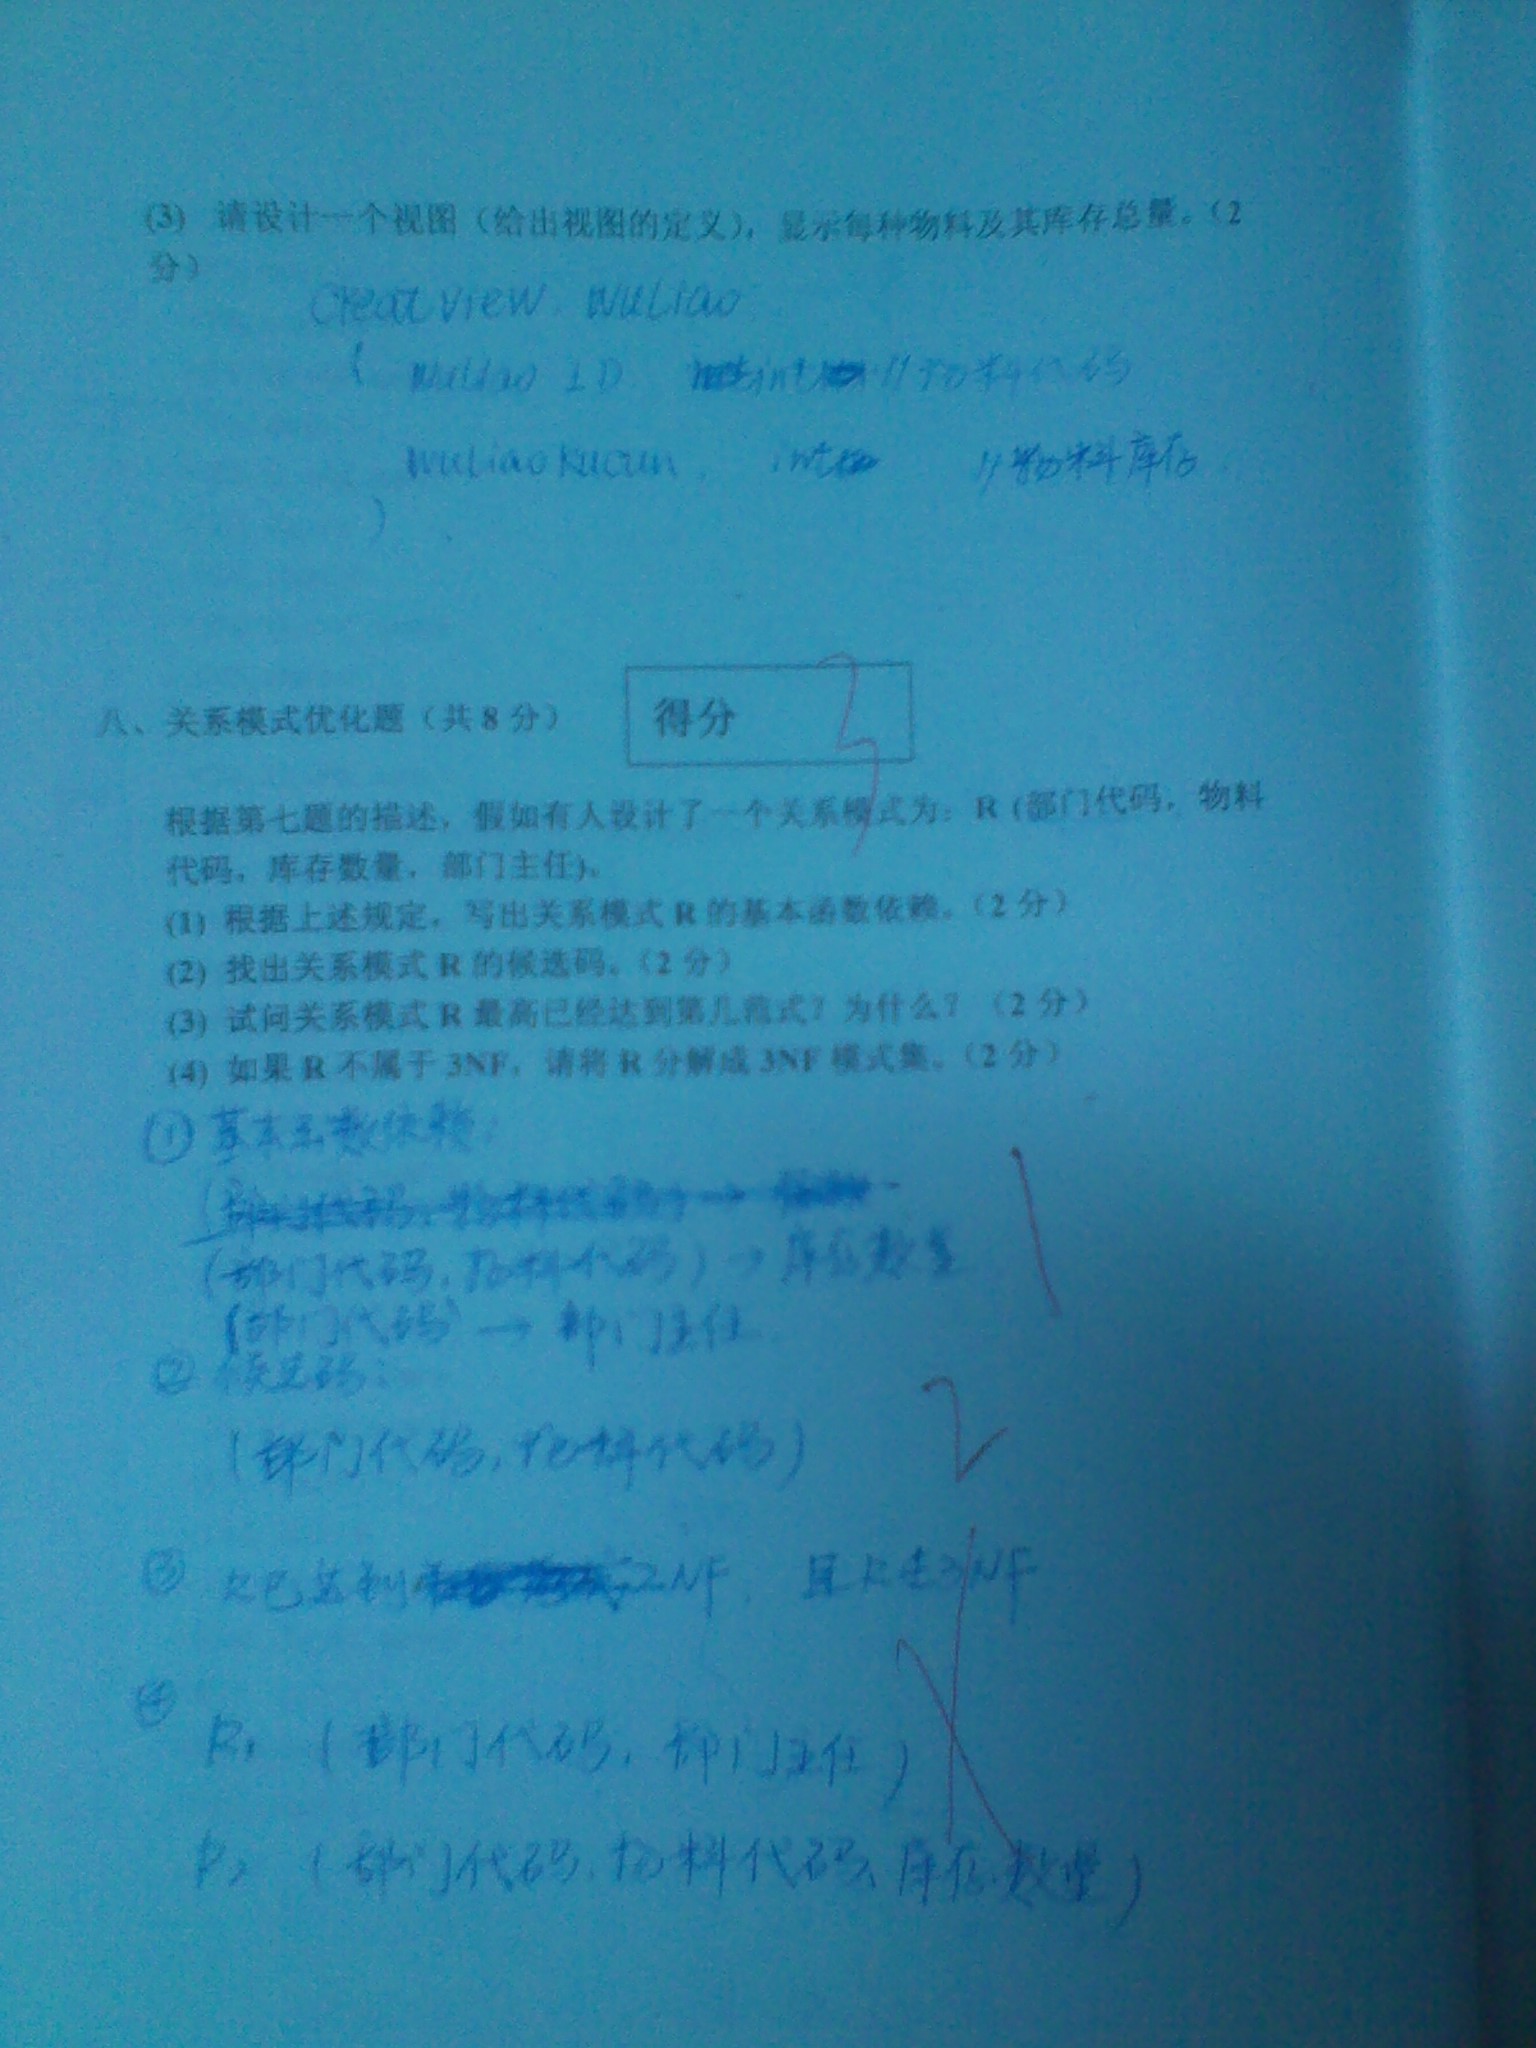 (3) 请设计一个视图（给出视图的定义），显示每种物料及其库存总量。（2
分）
Creat view wuliao
( wuliao ID int //物料代码
wuliaokucun int //物料库存
)
八、关系模式优化题（共8分）
得分 3
根据第七题的描述，假如有人设计了一个关系模式为：R（部门代码，物料
代码，库存数量，部门主任）。
(1) 根据上述规定，写出关系模式 R 的基本函数依赖。（2 分）
(2) 找出关系模式 R 的候选码。（2 分）
(3) 试问关系模式 R 最高已经达到第几范式？为什么？（2 分）
(4) 如果 R 不属于 3NF，请将 R 分解成 3NF 模式集。（2 分）
① 基本函数依赖：
(部门代码，物料代码) → 库存数量 1
(部门代码) → 部门主任
② 候选码：
(部门代码，物料代码) 2
③ R已达到 2NF. 3NF
④
R1 (部门代码，部门主任)
R2 (部门代码，物料代码，库存数量)